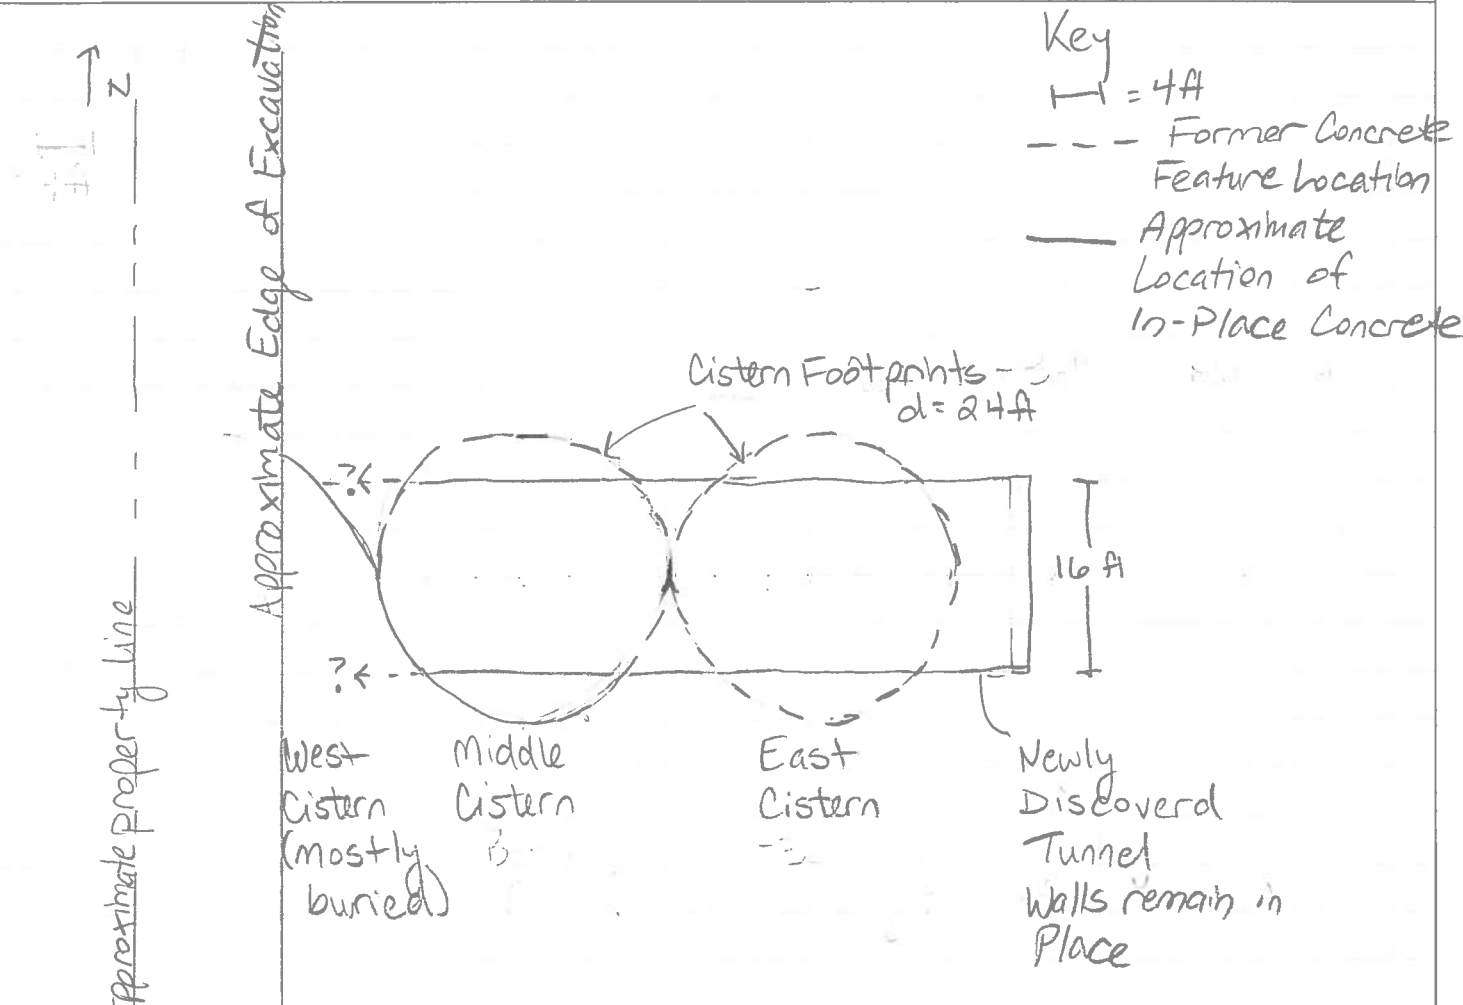 N
Approximate property line
Approximate Edge of Excavation
Key
= 4ft
Former Concrete
Feature Location
Approximate
Location of
In-Place Concrete
Cistern Footprints -
d= 24ft
?
?
16 ft
West
Cistern
(mostly
buried)
Middle
Cistern
East
Cistern
Newly
Discoverd
Tunnel
Walls remain in
Place